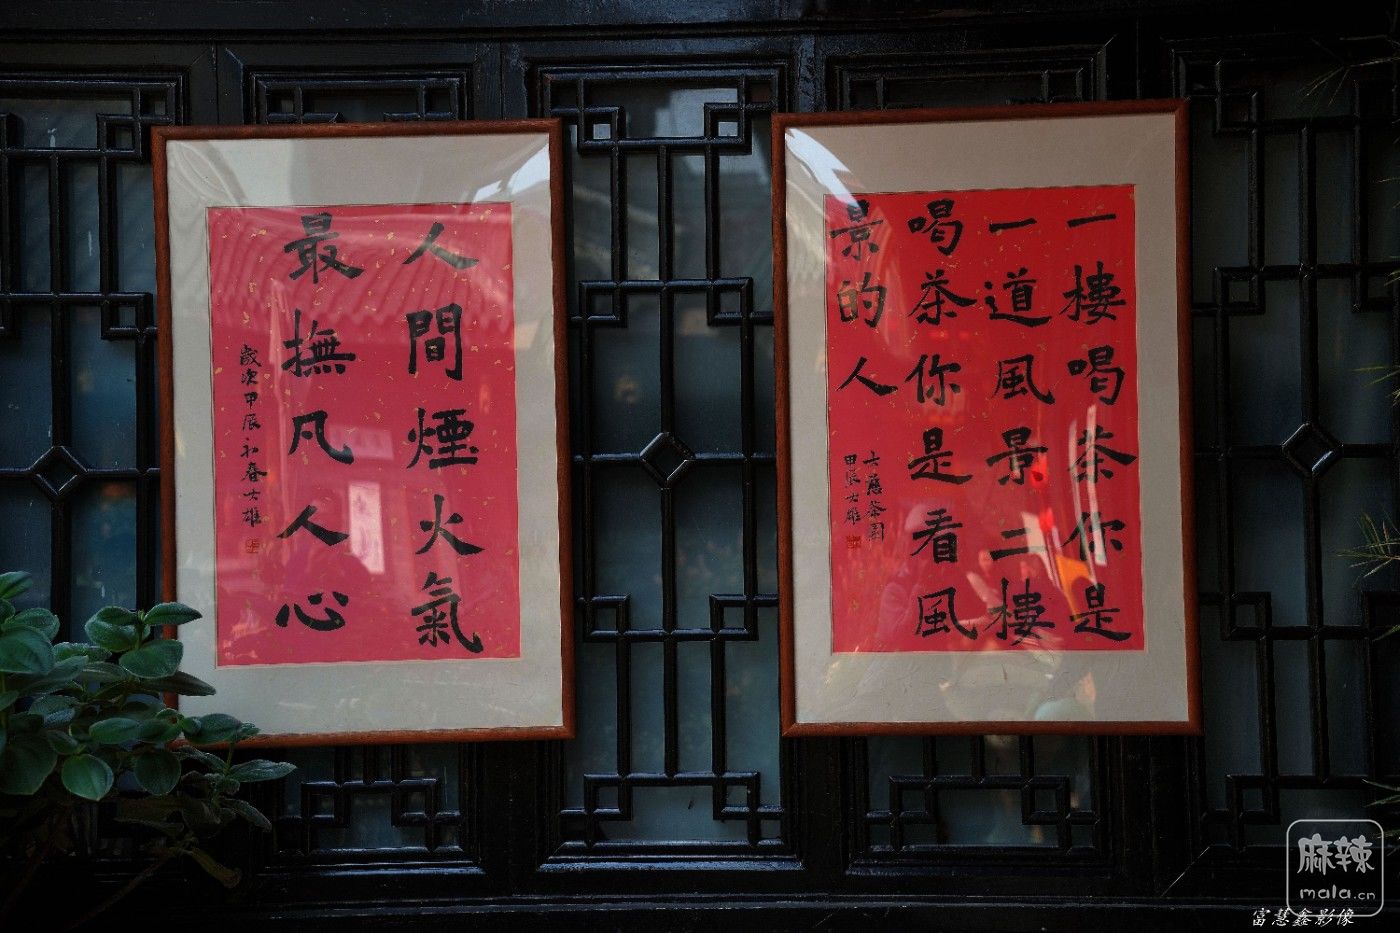 一樓喝茶你是
一道風景二樓
喝茶你是看風
景的人
甲辰士雄
人間煙火氣
最撫凡人心
歲次甲辰初春士雄
麻辣
mala.cn
富慧鑫影像